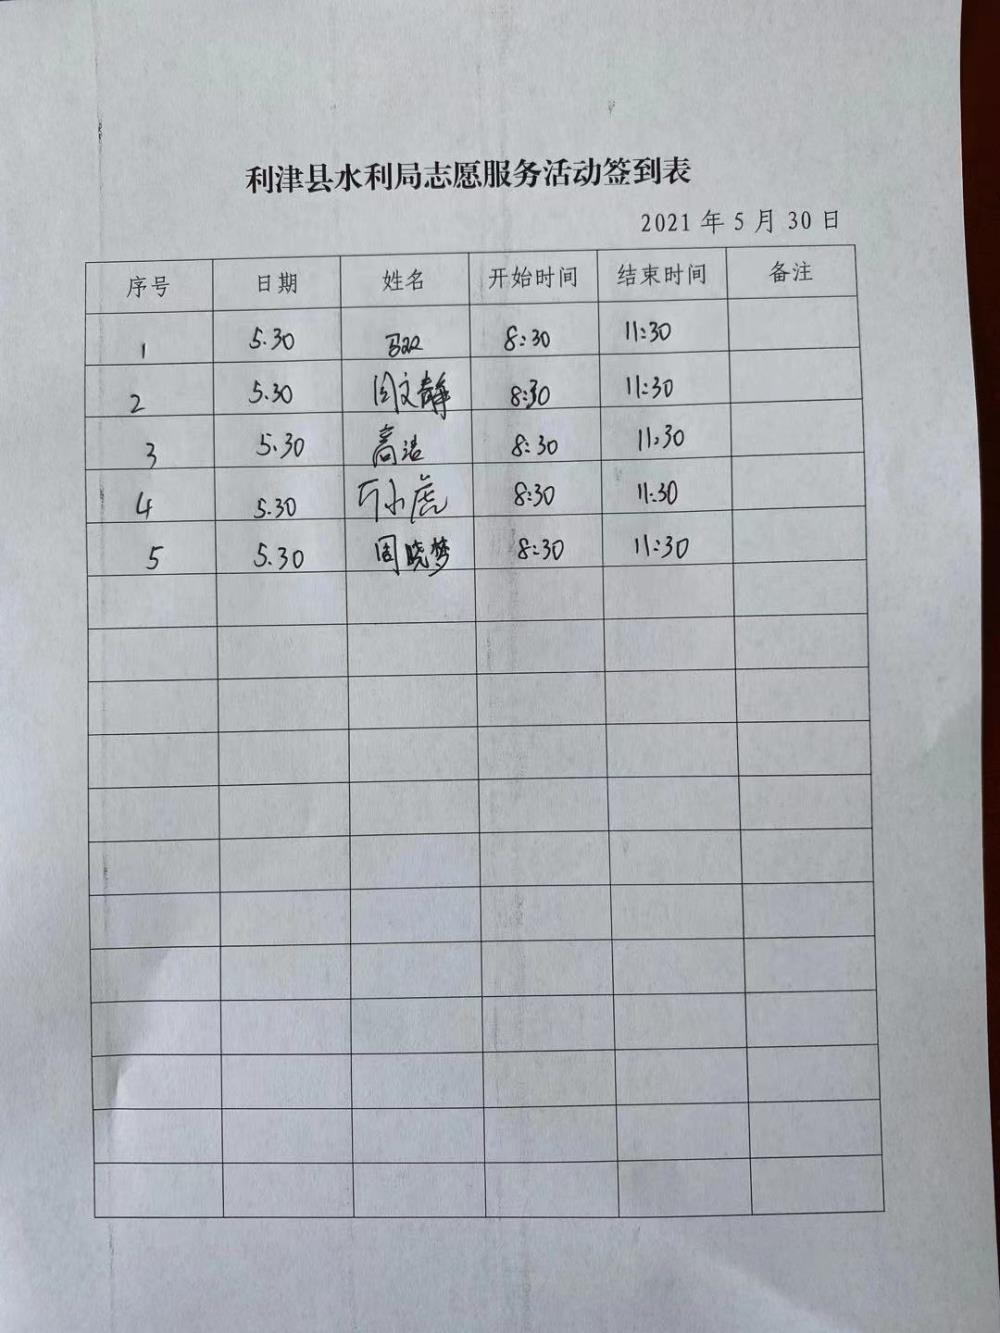 利津县水利局志愿服务活动签到表
2021年5月30日
序号 日期 姓名 开始时间 结束时间 备注
1 5.30 8:30 11:30
2 5.30 周文静 8:30 11:30
3 5.30 高洁 8:30 11:30
4 5.30 小虎 8:30 11:30
5 5.30 周晓梦 8:30 11:30